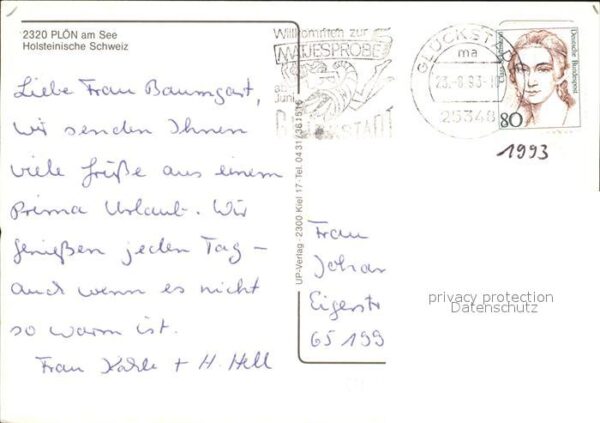 2320 PLÖN am See
Holsteinische Schweiz
Liebe Frau Baumgart,
wir senden Ihnen
viele Grüße aus einem
Prima Urlaub. Wir
genießen jeden Tag –
auch wenn es nicht
so warm ist.
Frau + H. Hell
UP-Verlag · 2300 Kiel 17 · Tel. 0431/361515
Willkommen zur
MATJESPROBE
ab
Juni
GLÜCKSTADT
GLÜCKSTADT
ma
23.-8.93-
25348
Deutsche Bundespost
80
1993
Frau
Johan
Eigerstr
65199
privacy protection
Datenschutz